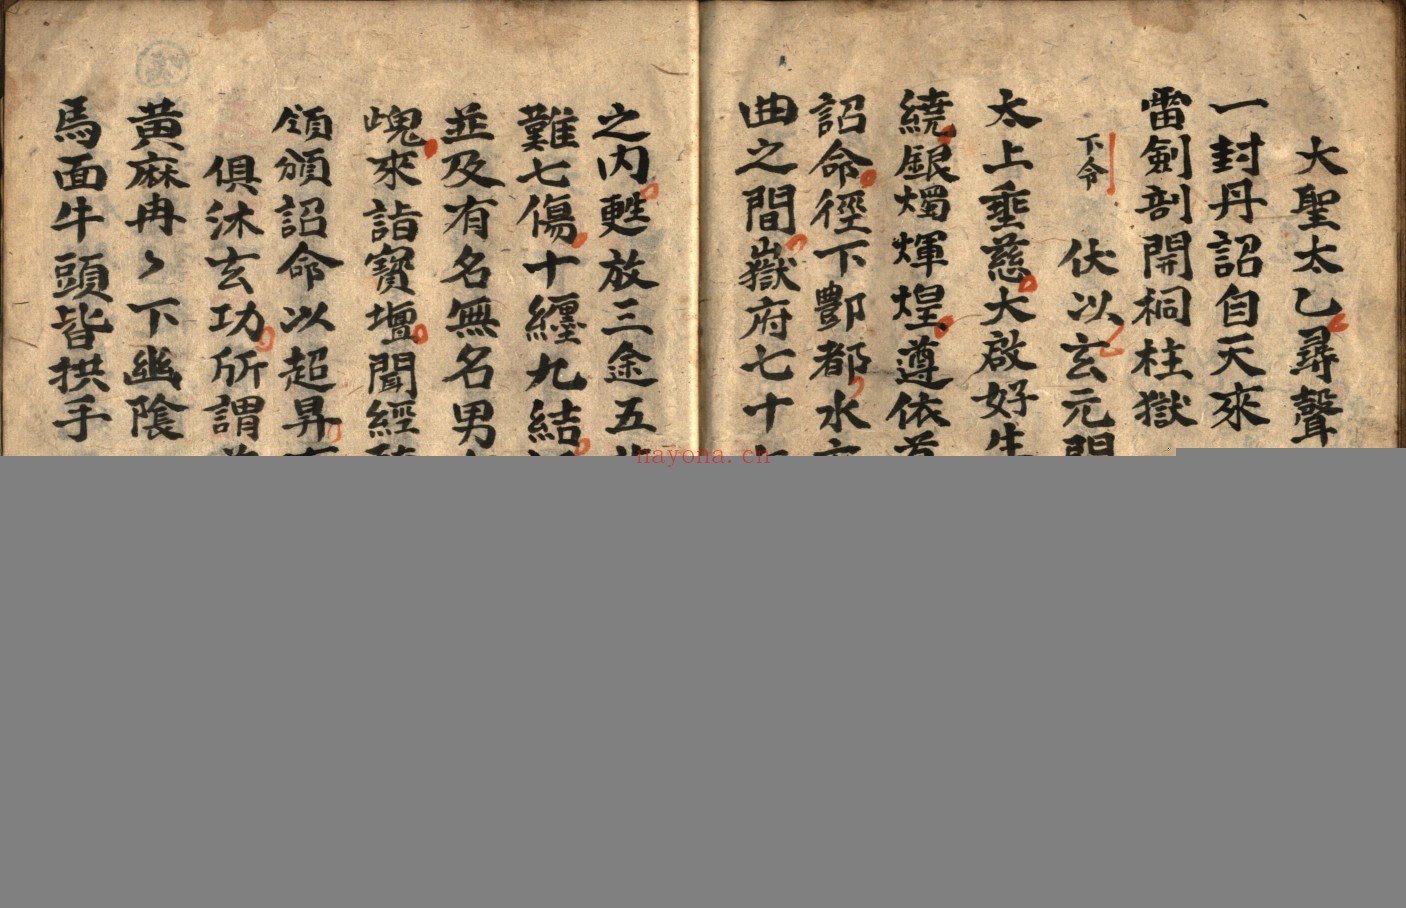 大聖太乙尋聲
一封丹詔自天來
雷劍剖開桐柱獄
下令
伏以玄元
太上垂慈大啟好生
繞銀燭煇煌遵依
詔命徑下酆都水
曲之間嶽府七十
之内甦放三途五
難七傷十纏九結
並及有名無名男
魂來詣寶壇聞經
頒詔命以超昇
俱沐玄功所謂
黄麻冉〻下幽陰
馬面牛頭皆拱手
nayona.cn